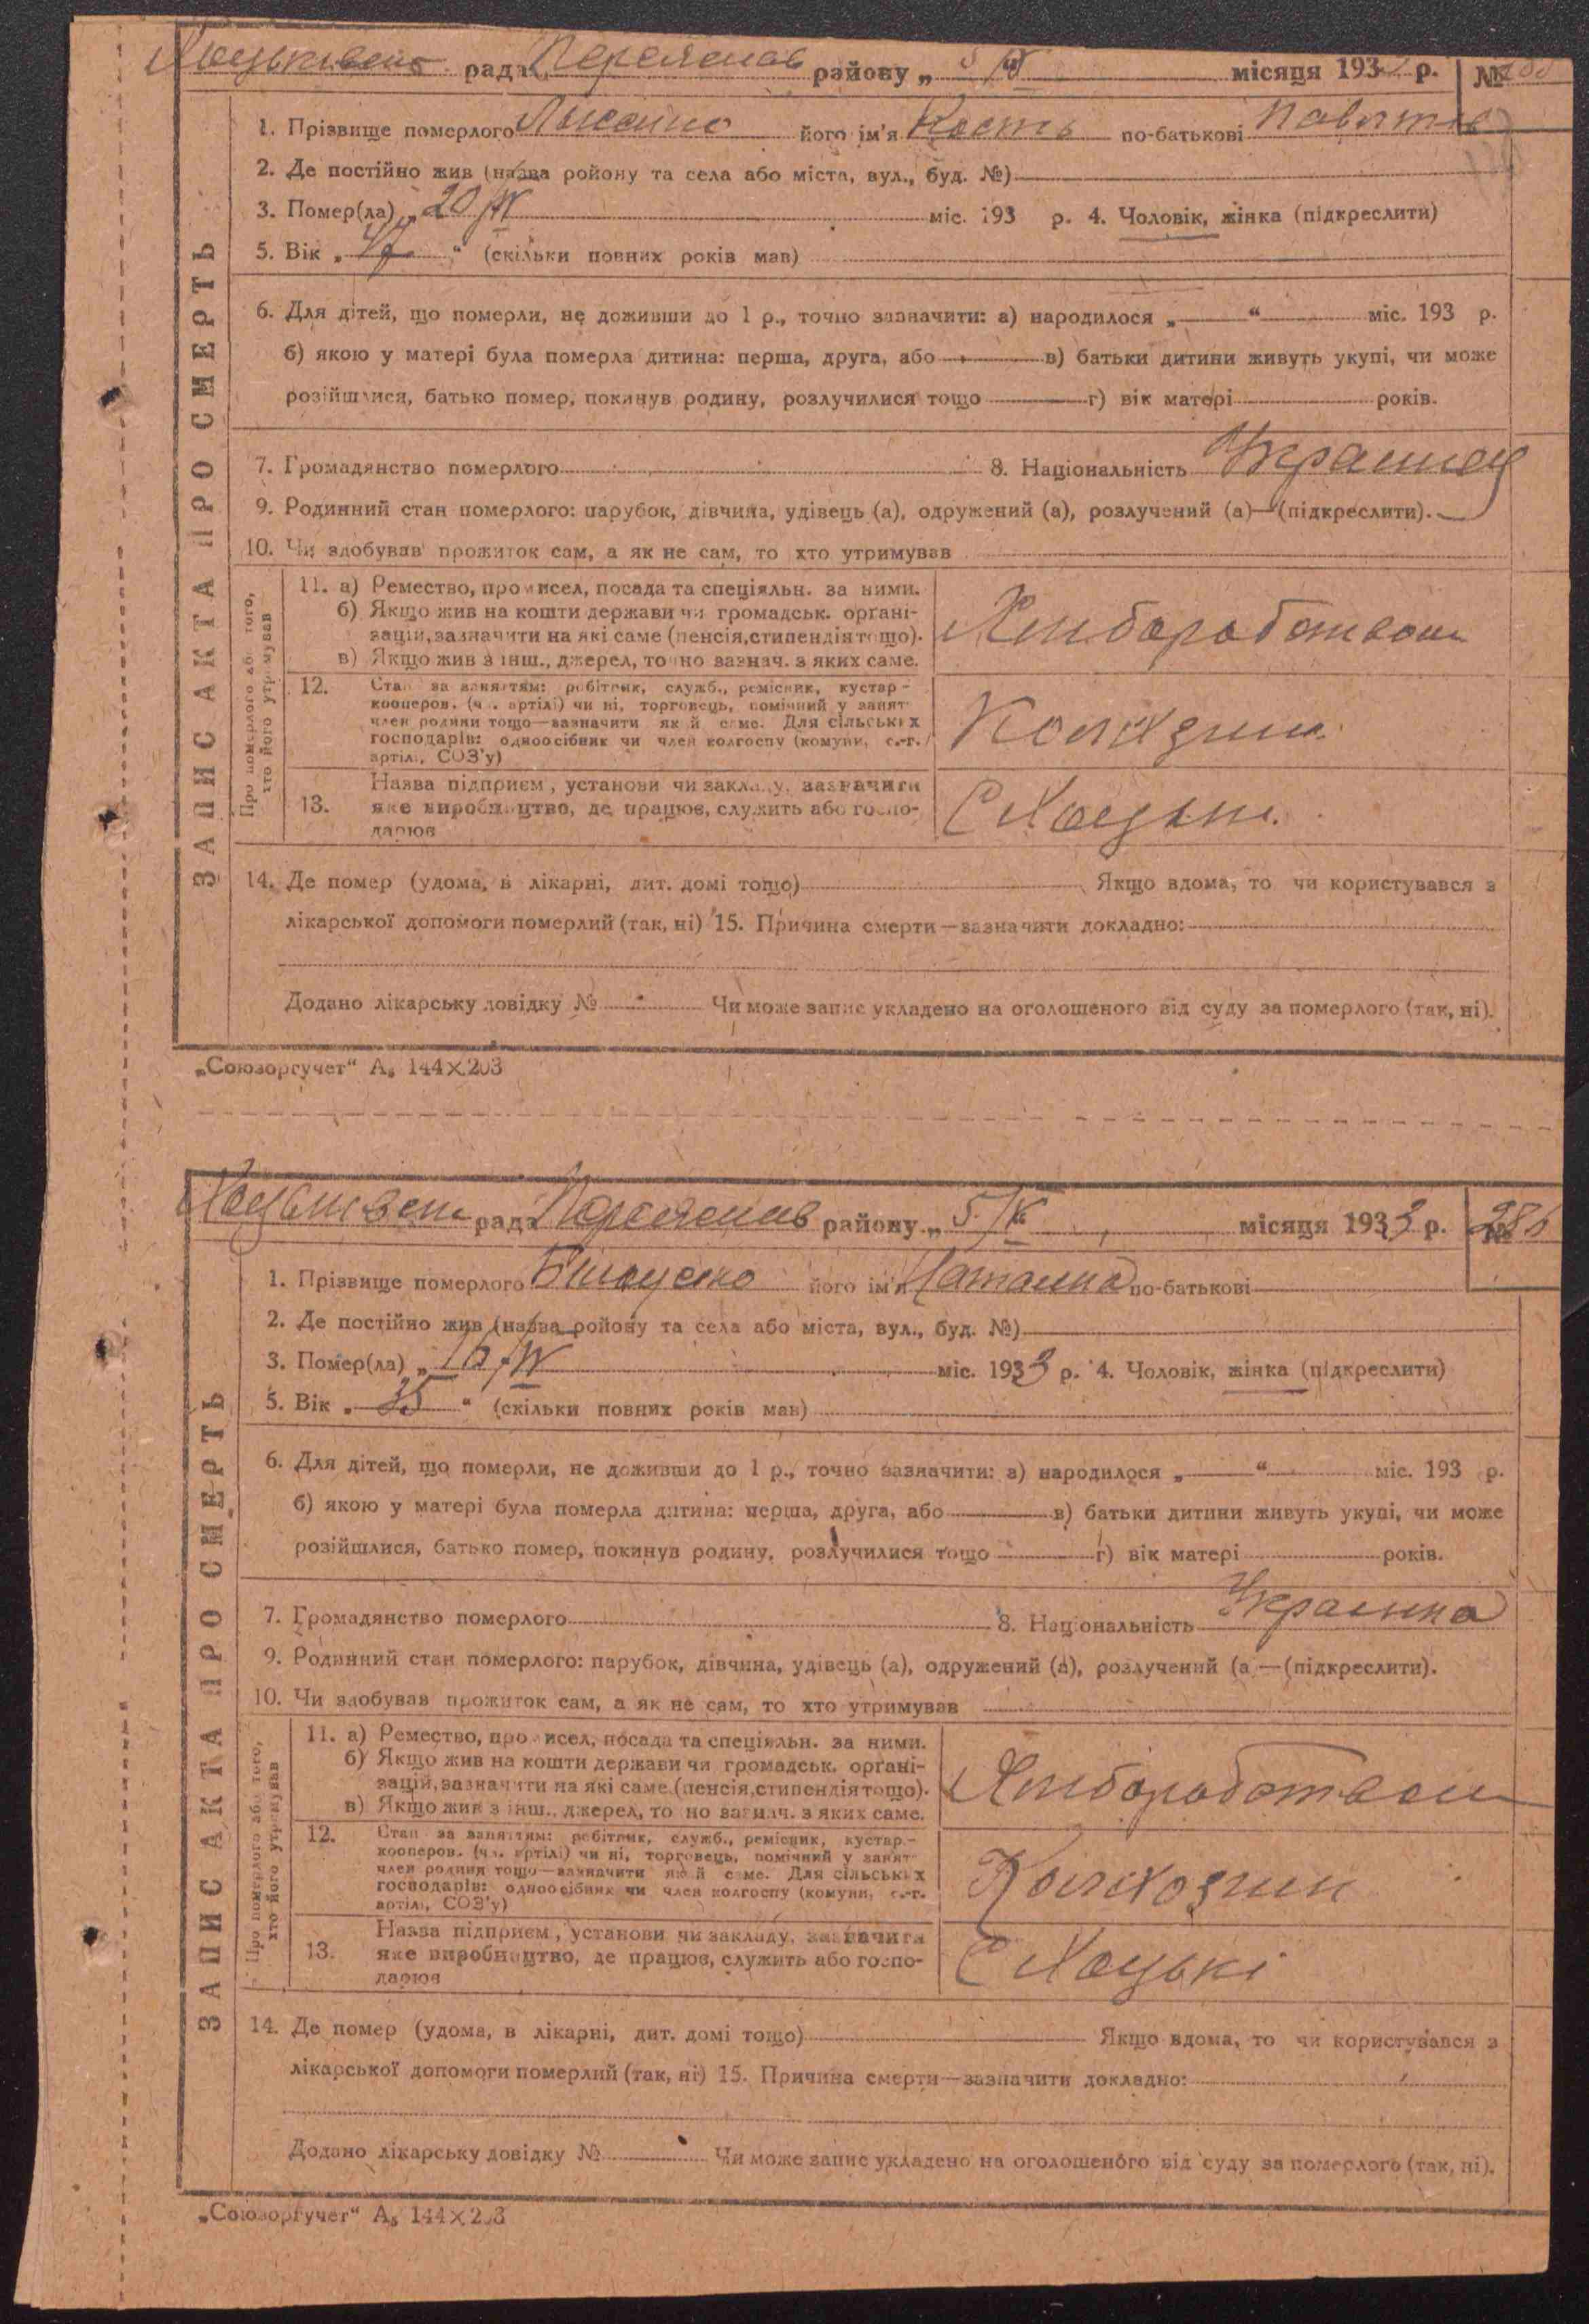 рада Переяслав району „ 5/V місяця 193 р. №
1. Прізвище померлого його ім'я Кость по-батькові
2. Де постійно жив (назва ройону та села або міста, вул., буд. №)
3. Помер(ла) „ 20/IV міс. 193 р. 4. Чоловік, жінка (підкреслити)
5. Вік „ “ (скільки повних років мав)
6. Для дітей, що померли, не доживши до 1 р., точно зазначити: а) народилося „ “ міс. 193 р.
б) якою у матері була померла дитина: перша, друга, або в) батьки дитини живуть укупі, чи може
розійшлися, батько помер, покинув родину, розлучилися тощо г) вік матері років.
7. Громадянство померлого 8. Національність Украинец
9. Родинний стан померлого: парубок, дівчина, удівець (а), одружений (а), розлучений (а)—(підкреслити).
10. Чи здобував прожиток сам, а як не сам, то хто утримував
ЗАПИС АКТА ПРО СМЕРТЬ
Про померлого або того, хто його утримував
11. а) Ремество, промисел, посада та спеціяльн. за ними.
б) Якщо жив на кошти держави чи громадськ. орґані-
зацій, зазначити на які саме (пенсія, стипендія тощо).
в) Якщо жив з інш., джерел, точно зазнач. з яких саме.
12. Стан за заняттям: робітник, служб., ремісник, кустар-
кооперов. (чл. артілі) чи ні, торговець, помічний у занят
член родини тощо—зазначити який саме. Для сільських
господарів: одноосібник чи член колгоспу (комуни, с.-г.
артілі, СОЗ'у)
13. Назва підприєм., установи чи закладу, зазначити
яке виробництво, де працює, служить або госпо-
дарює
14. Де помер (удома, в лікарні, дит. домі тощо) Якщо вдома, то чи користувався з
лікарської допомоги померлий (так, ні) 15. Причина смерти—зазначити докладно:
Додано лікарську довідку № Чи може запис укладено на оголошеного від суду за померлого (так, ні).
„Союзоргучет“ А₅ 144×203
рада Переяслав району „ 5/V місяця 1933 р. № 286
1. Прізвище померлого його ім'я по-батькові
2. Де постійно жив (назва ройону та села або міста, вул., буд. №)
3. Помер(ла) „ міс. 1933 р. 4. Чоловік, жінка (підкреслити)
5. Вік „ 35 “ (скільки повних років мав)
6. Для дітей, що померли, не доживши до 1 р., точно зазначити: а) народилося „ “ міс. 193 р.
б) якою у матері була померла дитина: перша, друга, або в) батьки дитини живуть укупі, чи може
розійшлися, батько помер, покинув родину, розлучилися тощо г) вік матері років.
7. Громадянство померлого 8. Національність Украинка
9. Родинний стан померлого: парубок, дівчина, удівець (а), одружений (а), розлучений (а —(підкреслити).
10. Чи здобував прожиток сам, а як не сам, то хто утримував
ЗАПИС АКТА ПРО СМЕРТЬ
Про померлого або того, хто його утримував
11. а) Ремество, промисел, посада та спеціяльн. за ними.
б) Якщо жив на кошти держави чи громадськ. орґані-
зацій, зазначити на які саме (пенсія, стипендія тощо).
в) Якщо жив з інш., джерел, точно зазнач. з яких саме.
12. Стан за заняттям: робітник, служб., ремісник, кустар.-
кооперов. (чл. артілі) чи ні, торговець, помічний у занят
член родини тощо—зазначити який саме. Для сільських
господарів: одноосібник чи член колгоспу (комуни, с.-г.
артілі, СОЗ'у)
Колхозник
13. Назва підприєм., установи чи закладу, зазначити
яке виробництво, де працює, служить або госпо-
дарює
С Хоцькі
14. Де помер (удома, в лікарні, дит. домі тощо) Якщо вдома, то чи користувався з
лікарської допомоги померлий (так, ні) 15. Причина смерти—зазначити докладно:
Додано лікарську довідку № Чи може запис укладено на оголошеного від суду за померлого (так, ні).
„Союзоргучет“ А₅ 144×203